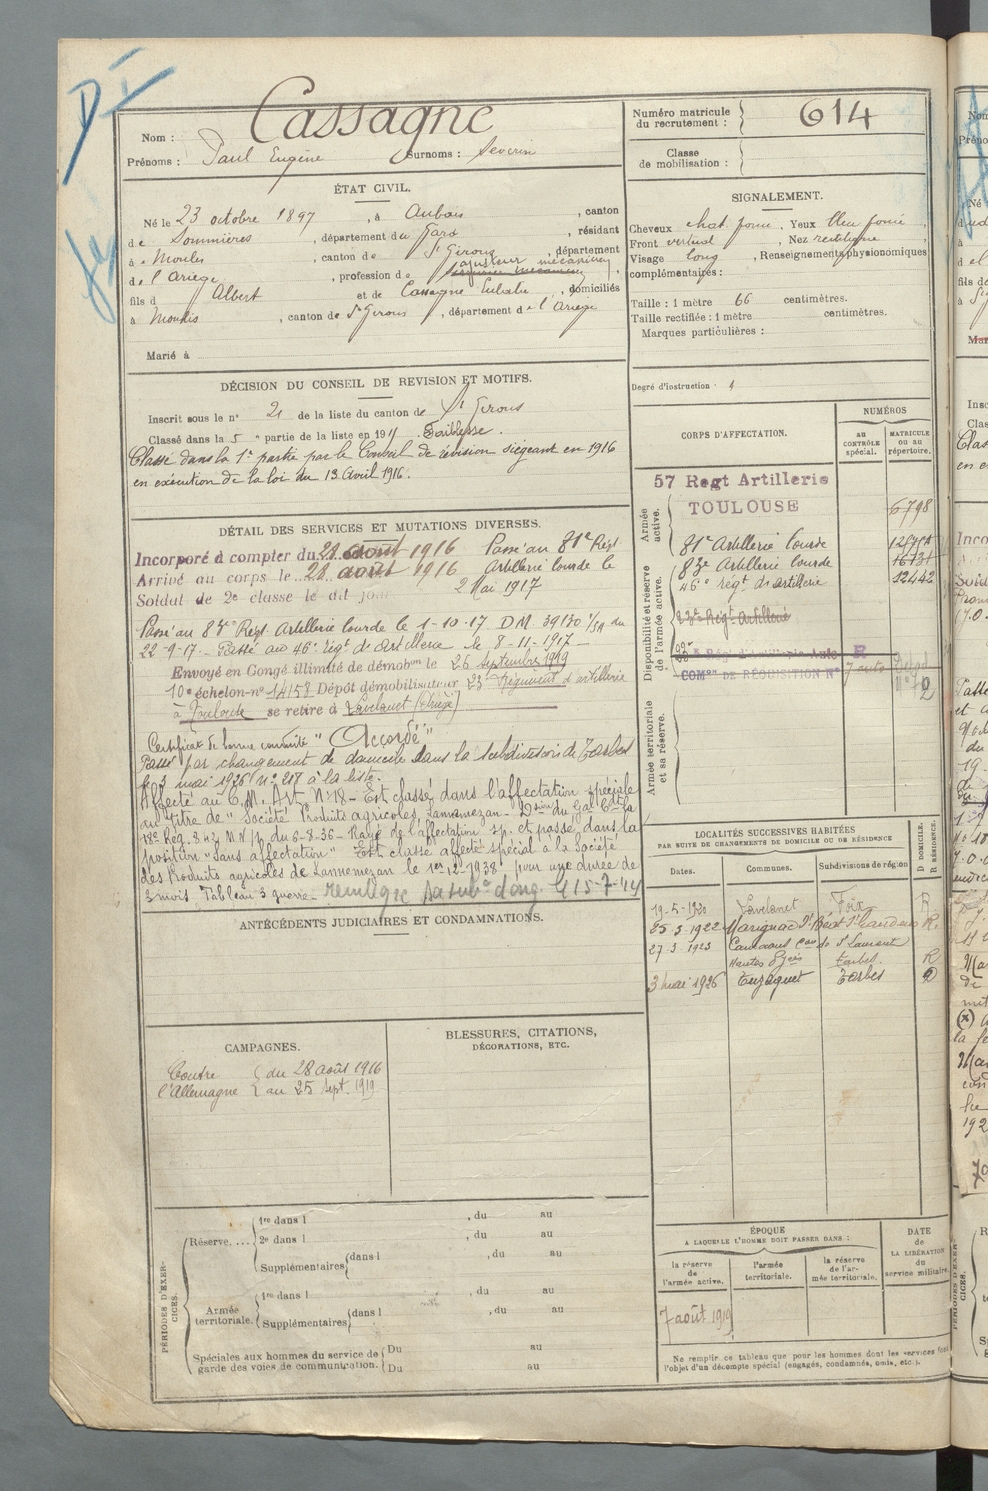 D I
Cassagne
Nom :
Prénoms : Paul Eugène Surnoms : Severin
Numéro matricule
du recrutement : 614
Classe
de mobilisation :
ÉTAT CIVIL.
Né le 23 octobre 1897, à Aubais, canton
de Sommières, département du Gard, résidant
à Moulis, canton de St Girons, département
de l'Ariège, profession de ajusteur mécanicien
fils d Albert et de Cassagne Eulalie, domiciliés
à Moulis, canton de St Girons, département de l'Ariège
Marié à
SIGNALEMENT.
Cheveux chat. foncé. Yeux bleu foncé
Front vertical, Nez rectiligne
Visage long, Renseignements physionomiques
complémentaires :
Taille : 1 mètre 66 centimètres.
Taille rectifiée : 1 mètre centimètres.
Marques particulières :
Degré d'instruction :
DÉCISION DU CONSEIL DE REVISION ET MOTIFS.
Inscrit sous le n° 21 de la liste du canton de St Girons
Classé dans la 5 e partie de la liste en 191 Faiblesse.
Classé dans la 1e partie par le Conseil de révision siégeant en 1916
en exécution de la loi du 13 Avril 1916.
DÉTAIL DES SERVICES ET MUTATIONS DIVERSES.
Incorporé à compter du 28 août 1916 Passé au 81e Régt
Arrivé au corps le 28 août 1916 Artillerie lourde le
Soldat de 2e classe le dit jour 2 Mai 1917
Passé au 83e Régt Artillerie lourde le 1-10-17 D.M. 39130 du
22-9-17 - Passé au 46e régt d'artillerie le 8-11-1917
Envoyé en Congé illimité de démobon le 26 Septembre 1919
10e échelon - n° 14158 Dépôt démobilisateur 23e Régiment d'artillerie
à Toulouse se retire à Lavelanet (Ariège)
Certificat de bonne conduite "Accordé"
Passé par changement de domicile dans la subdivision de Tarbes
le 3 mai 1926 n° 217 à la liste.
Affecté au C.M. Art. N° 18 - Est classé dans l'affectation spéciale
au titre de "Société Produits agricoles Lannemezan -
18e Rég. 842 du 6-8-36 - Rayé de l'affectation sp. et passé dans la
position "sans affectation" Est classé affecté spécial à la Société
des Produits agricoles de Lannemezan le 1er 12-1938 pour une durée de
3 mois Tableau 3 guerre -
CORPS D'AFFECTATION.
NUMÉROS
AU CONTRÔLE spécial.
MATRICULE ou au répertoire.
Armée active.
57 Regt Artillerie
TOULOUSE 6798
81e Artillerie lourde
83e Artillerie lourde
46e régt d'artillerie 12442
Disponibilité et réserve de l'armée active.
23e Régt Artillerie
R
COMon DE RÉQUISITION N° 7 auto
Armée territoriale et sa réserve.
ANTÉCÉDENTS JUDICIAIRES ET CONDAMNATIONS.
LOCALITÉS SUCCESSIVES HABITÉES
PAR SUITE DE CHANGEMENTS DE DOMICILE OU DE RÉSIDENCE
Dates. Communes. Subdivisions de région D DOMICILE. R RÉSIDENCE.
19-5-1920 Lavelanet Foix R
25-3-1922 Marignac St Béat St Gaudens R.
27-3-1923 Camaous con de St Laurent
Hautes Pyées Tarbes. R
3 mai 1926 Tuzaguet Tarbes D
CAMPAGNES.
Contre l'Allemagne { du 28 août 1916
au 25 sept. 1919
BLESSURES, CITATIONS,
DÉCORATIONS, ETC.
PÉRIODES D'EXERCICES.
Réserve.... 1re dans l , du au
2e dans l , du au
Supplémentaires dans l , du au
Armée territoriale. 1re dans l , du au
Supplémentaires dans l , du au
Spéciales aux hommes du service de Du au
garde des voies de communication. Du au
ÉPOQUE
A LAQUELLE L'HOMME DOIT PASSER DANS :
la réserve de l'armée active. l'armée territoriale. la réserve de l'armée territoriale.
DATE de LA LIBÉRATION du service militaire.
7 août 1919
Ne remplir ce tableau que pour les hommes dont les services font
l'objet d'un décompte spécial (engagés, condamnés, omis, etc.).